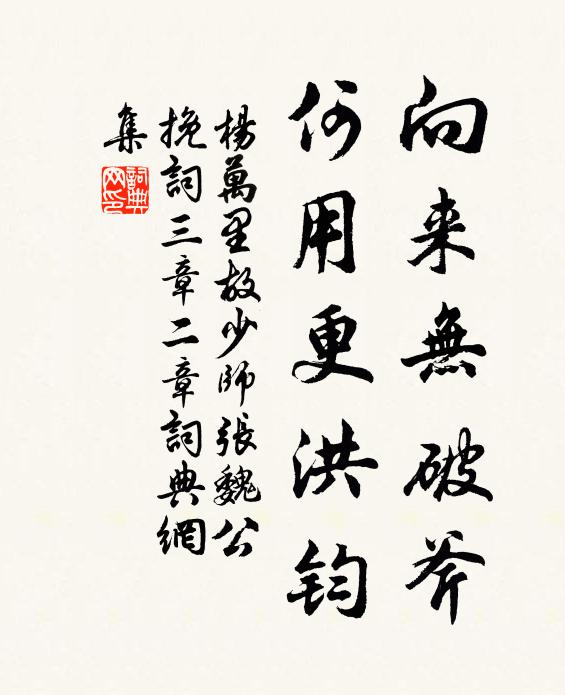 向来無破斧
何用更洪钧
楊萬里故少師張魏公
挽詞三章二章詞典網
集
詞典
网印